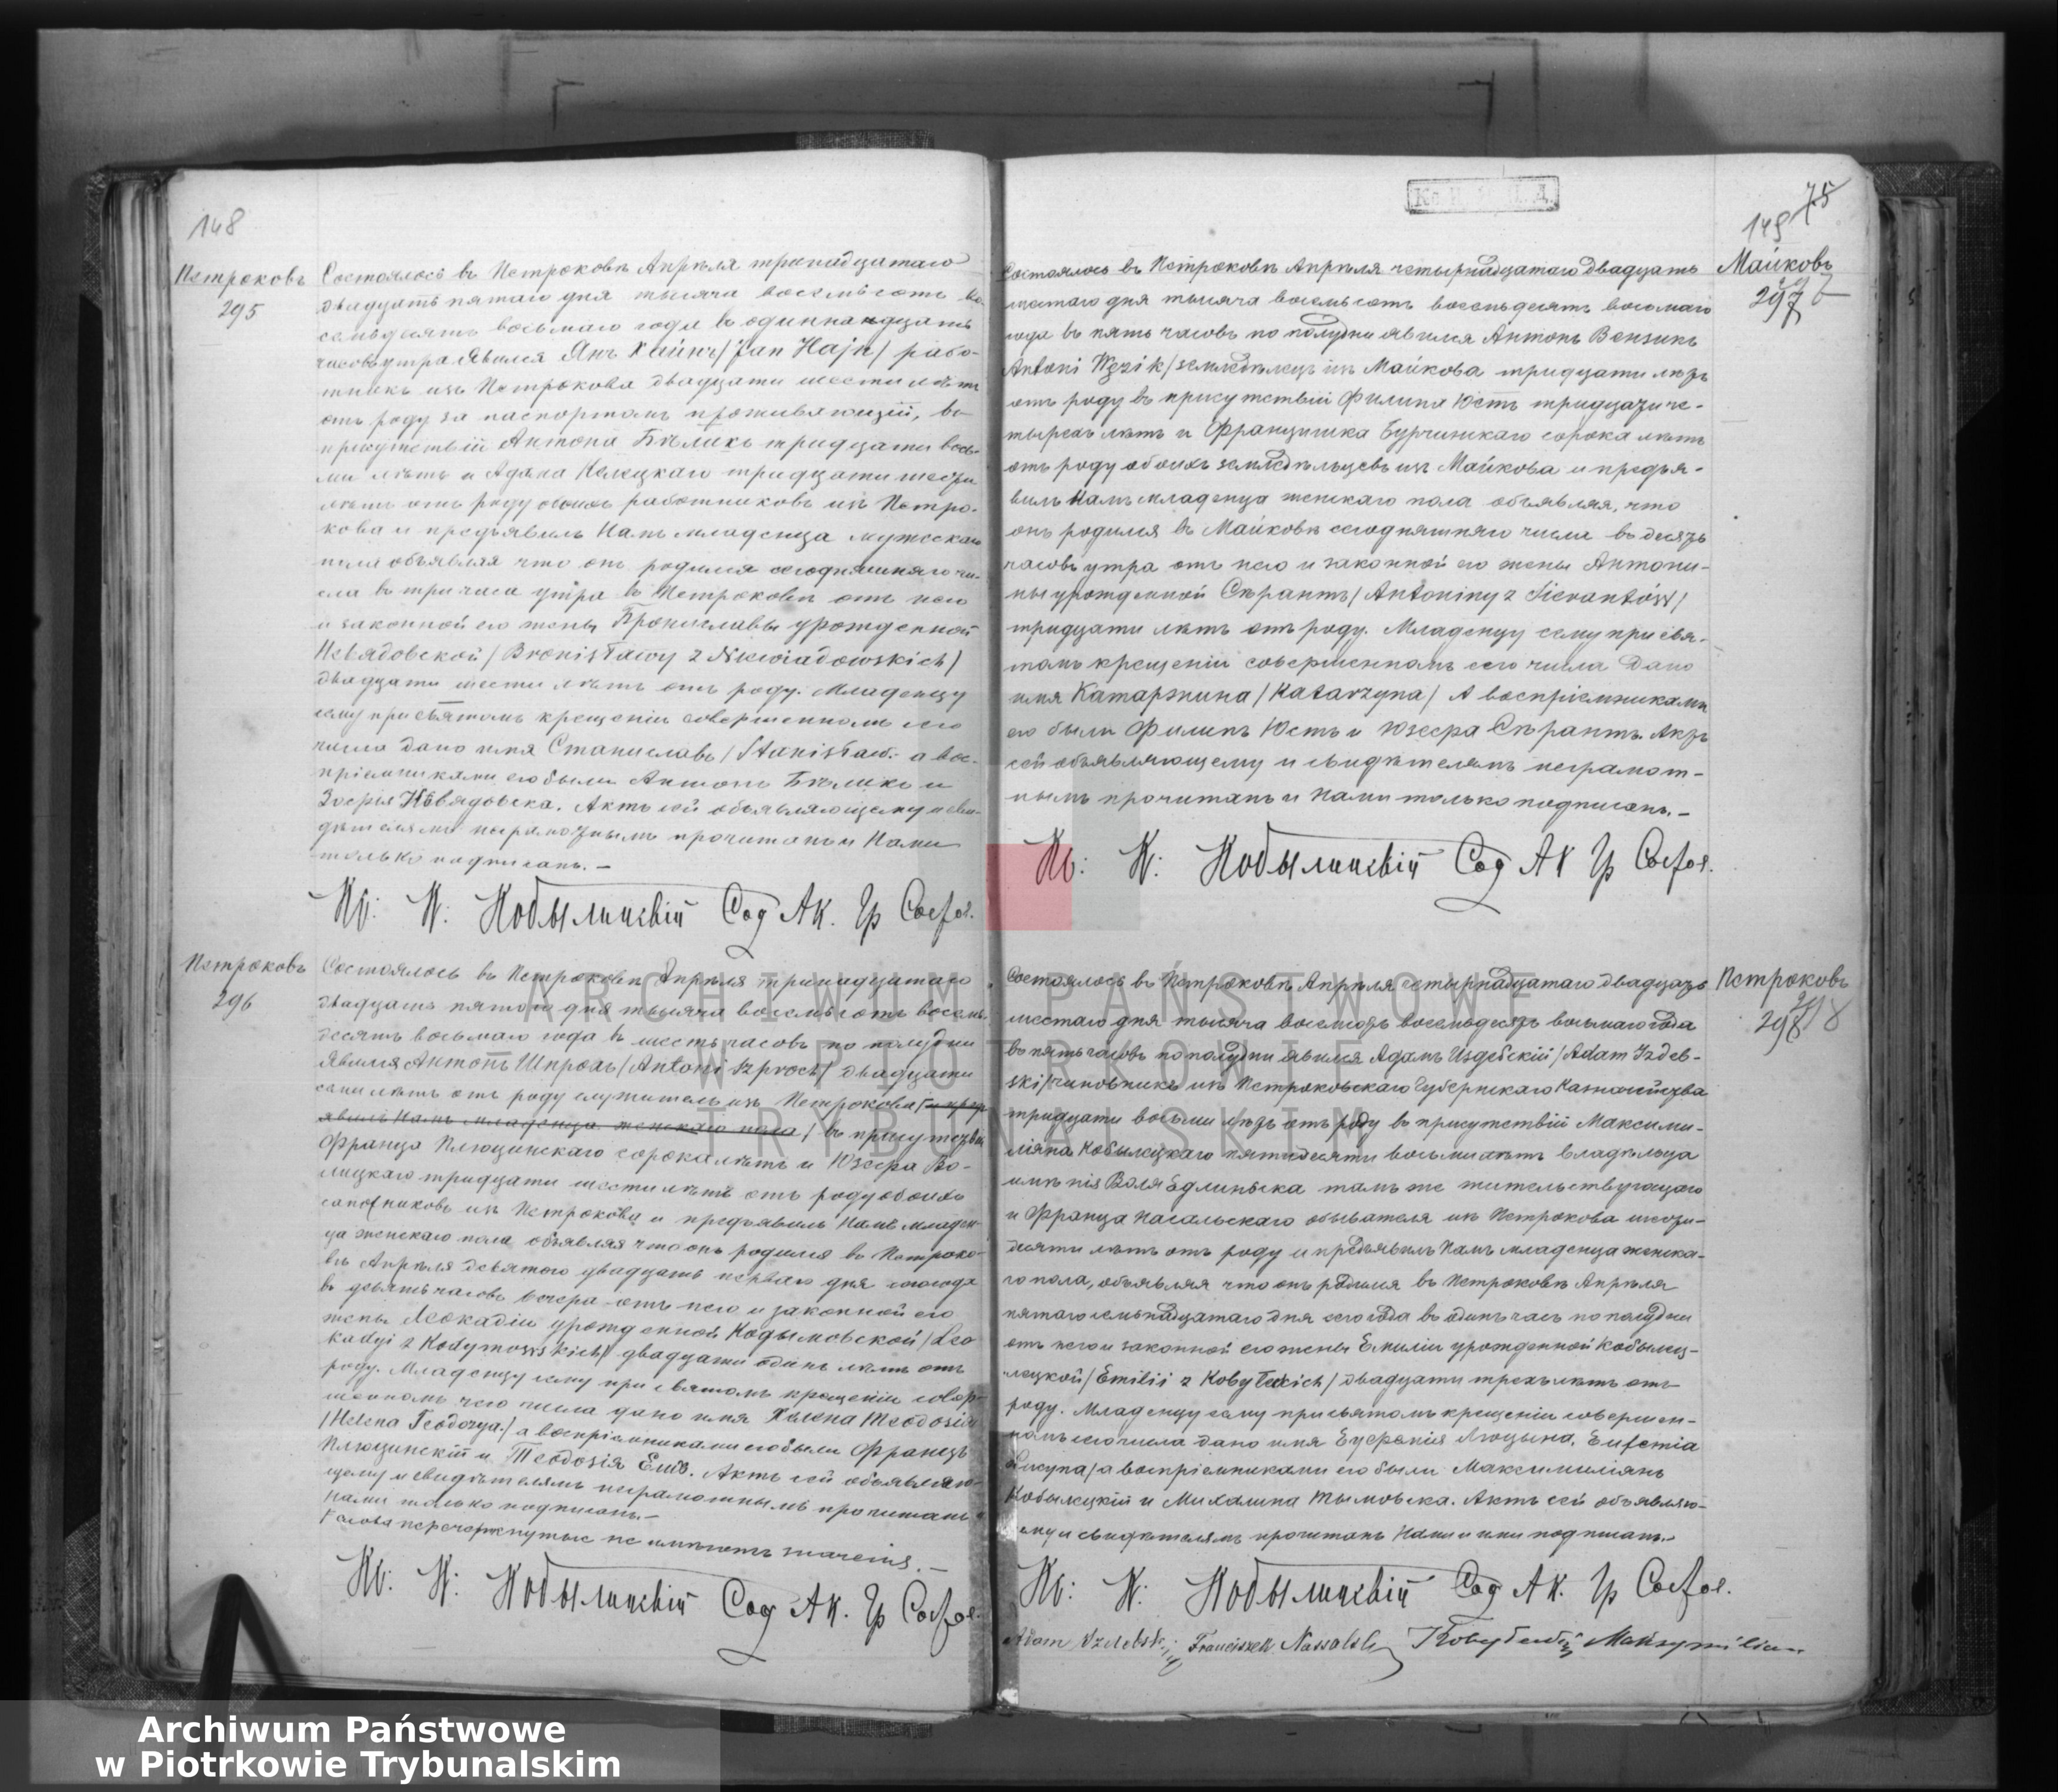 148
Петроковъ
295
Состоялось въ Петроковѣ Апрѣля тринадцатаго
двадцать пятаго дня тысяча восемьсотъ во-
семьдесятъ восьмаго года въ одиннадцать
часовъ утра Явился Янъ Хайнъ /Jan Hajn/ рабо-
тникъ изъ Петрокова двадцати шести лѣтъ
отъ роду за паспортомъ проживающій, въ
присутствіи Антона Бѣликъ тридцати вось-
ми лѣтъ и Адама Келецкаго тридцати шести
лѣтъ отъ роду обоихъ работниковъ изъ Петро-
кова и предъявилъ Намъ младенца мужескаго
пола объявляя что онъ родился сегодняшняго чи-
сла въ три часа утра въ Петроковѣ отъ него
и законной его жены Брониславы урожденной
Невядовской /Bronisławy z Niewiadowskich/
двадцати шести лѣтъ отъ роду. Младенцу
сему при святомъ крещеніи совершенномъ сего
числа дано имя Станиславъ /Stanisław:- а вос-
пріемниками его были Антонъ Бѣликъ и
Зофія Невядовска. Актъ сей объявляющему и сви-
дѣтелямъ неграмотнымъ прочитанъ и Нами
только подписанъ. —
Кс: К: Кобылинскій Сод Ак. Гр Состоя.
Петроковъ
296
Состоялось въ Петроковѣ Апрѣля тринадцатаго
двадцать пятаго дня тысяча восемьсотъ восемь-
десятъ восьмаго года въ шесть часовъ по полудни
Явился Антонъ Шпрохъ /Antoni Szproch/ двадцати
семи лѣтъ отъ роду служитель изъ Петрокова /и предъ
явилъ Намъ младенца женскаго пола/ въ присутствіи
Франца Плюцинскаго сорока лѣтъ и Юзефа Во-
лицкаго тридцати шести лѣтъ отъ роду обоихъ
сапожниковъ изъ Петрокова и предъявилъ Намъ младен-
ца женскаго пола объявляя что онъ родился въ Петроко-
вѣ Апрѣля девятаго двадцать перваго дня сего года
въ девять часовъ вечера отъ него и законной его
жены Леокадіи урожденной Кодымовской /Leo
kadyi z Kodymowskich/ двадцати одинъ лѣтъ отъ
роду. Младенцу сему при святомъ крещеніи совер-
шенномъ сего числа дано имя Хелена Теодозія
/Helena Teodozya./ а воспріемниками его были Францъ
Плюцинскій и Теодозія Емъ. Актъ сей объявляю-
щему и свидѣтелямъ неграмотнымъ прочитанъ и
Нами только подписанъ. —
Слова перечеркнутые не имѣютъ значенія. —
Кс: К: Кобылинскій Сод Ак. Гр Состоя.
75
149
Майковъ
297
Состоялось въ Петроковѣ Апрѣля четырнадцатаго двадцать
шестаго дня тысяча восемьсотъ восемьдесятъ восьмаго
года въ пять часовъ по полудни явился Антонъ Вензикъ
Antoni Węzik/ земледѣлецъ изъ Майкова тридцати лѣтъ
отъ роду въ присутствіи Филипа Юсть тридцати че-
тырехъ лѣтъ и Францишка Бурчинскаго сорока лѣтъ
отъ роду обоихъ земледѣльцевъ изъ Майкова и предъя-
вилъ Намъ младенца женскаго пола объявляя, что
онъ родился въ Майковѣ сегодняшняго числа въ десять
часовъ утра отъ него и законной его жены Антони-
ны урожденной Сѣрантъ /Antoniny z Sierantów/
тридцати лѣтъ отъ роду. Младенцу сему при свя-
томъ крещеніи совершенномъ сего числа дано
имя Катаржина /Katarzyna/ А воспріемниками
его были Филипъ Юсть и Юзефа Сѣрантъ. Актъ
сей объявляющему и свидѣтелямъ неграмот-
нымъ прочитанъ и Нами только подписанъ. —
Кс: К: Кобылинскій Сод Ак Гр Состоя.
Петроковъ
298
Состоялось въ Петроковѣ Апрѣля четырнадцатаго двадцать
шестаго дня тысяча восемьсотъ восемьдесятъ восьмаго года
въ пять часовъ по полудни явился Адамъ Издебскій /Adam Izdeb-
ski/ чиновникъ изъ Петроковскаго Губернскаго Казначейства
тридцати восьми лѣтъ отъ роду въ присутствіи Максими-
ліяна Кобылецкаго пятидесяти восьми лѣтъ владѣльца
имѣнія Воля Едлиньска тамъ же жительствующаго
и Франца Насальскаго обывателя изъ Петрокова шести-
десяти лѣтъ отъ роду и предъявилъ Намъ младенца женска-
го пола, объявляя что онъ родился въ Петроковѣ Апрѣля
пятаго семьнадцатаго дня сего года въ одинъ часъ по полудни
отъ него и законной его жены Емиліи урожденной Кобылец-
лецкой /Emilii z Kobyłeckich/ двадцати трехъ лѣтъ отъ
роду. Младенцу сему при святомъ крещеніи совершен-
номъ сего числа дано имя Еуфемія Люцына, Eufemia
Lucyna/ а воспріемниками его были Максимиліянъ
Кобылецкій и Михалина Тымовска. Актъ сей объявляю-
ему и свидѣтелямъ прочитанъ Нами и ими подписанъ. —
Кс: К: Кобылинскій Сод Ак. Гр Состоя.
Adam Izdebski Franciszek Nassalski Kobyłecki Maksymilian
ARCHIWUM PAŃSTWOWE
W PIOTRKOWIE
TRYBUNALSKIM
Archiwum Państwowe
w Piotrkowie Trybunalskim